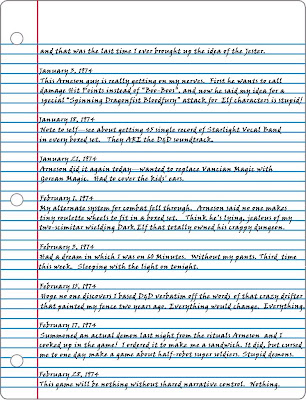 and that was the last time I ever brought up the idea of the Jester.
January 3, 1974
This Arneson guy is really getting on my nerves. First he wants to call
damage Hit Points instead of "Boo-Boos", and now he said my idea for a
special "Spinning Dragonfist Bloodfury" attack for Elf characters is stupid!
January 18, 1974
Note to self—see about getting 45 single record of Starlight Vocal Band
in every boxed set. They ARE the D&D soundtrack.
January 21, 1974
Arneson did it again today—wanted to replace Vancian Magic with
Gorean Magic. Had to cover the kids' ears.
February 1, 1974
My alternate system for combat fell through. Arneson said no one makes
tiny roulette wheels to fit in a boxed set. Think he's lying, jealous of my
two-scimitar wielding Dark Elf that totally owned his crappy dungeon.
February 3, 1974
Had a dream in which I was on 60 Minutes. Without my pants. Third time
this week. Sleeping with the light on tonight.
February 15, 1974
Hope no one discovers I based D&D verbatim off the words of that crazy drifter
that painted my fence two years ago. Everything would change. Everything.
February 17, 1974
Summoned an actual demon last night from the rituals Arneson and I
cooked up in the game! I ordered it to make me a sandwich. It did, but cursed
me to one day make a game about half-robot super soldiers. Stupid demons.
February 28, 1974
This game will be nothing without shared narrative control. Nothing.